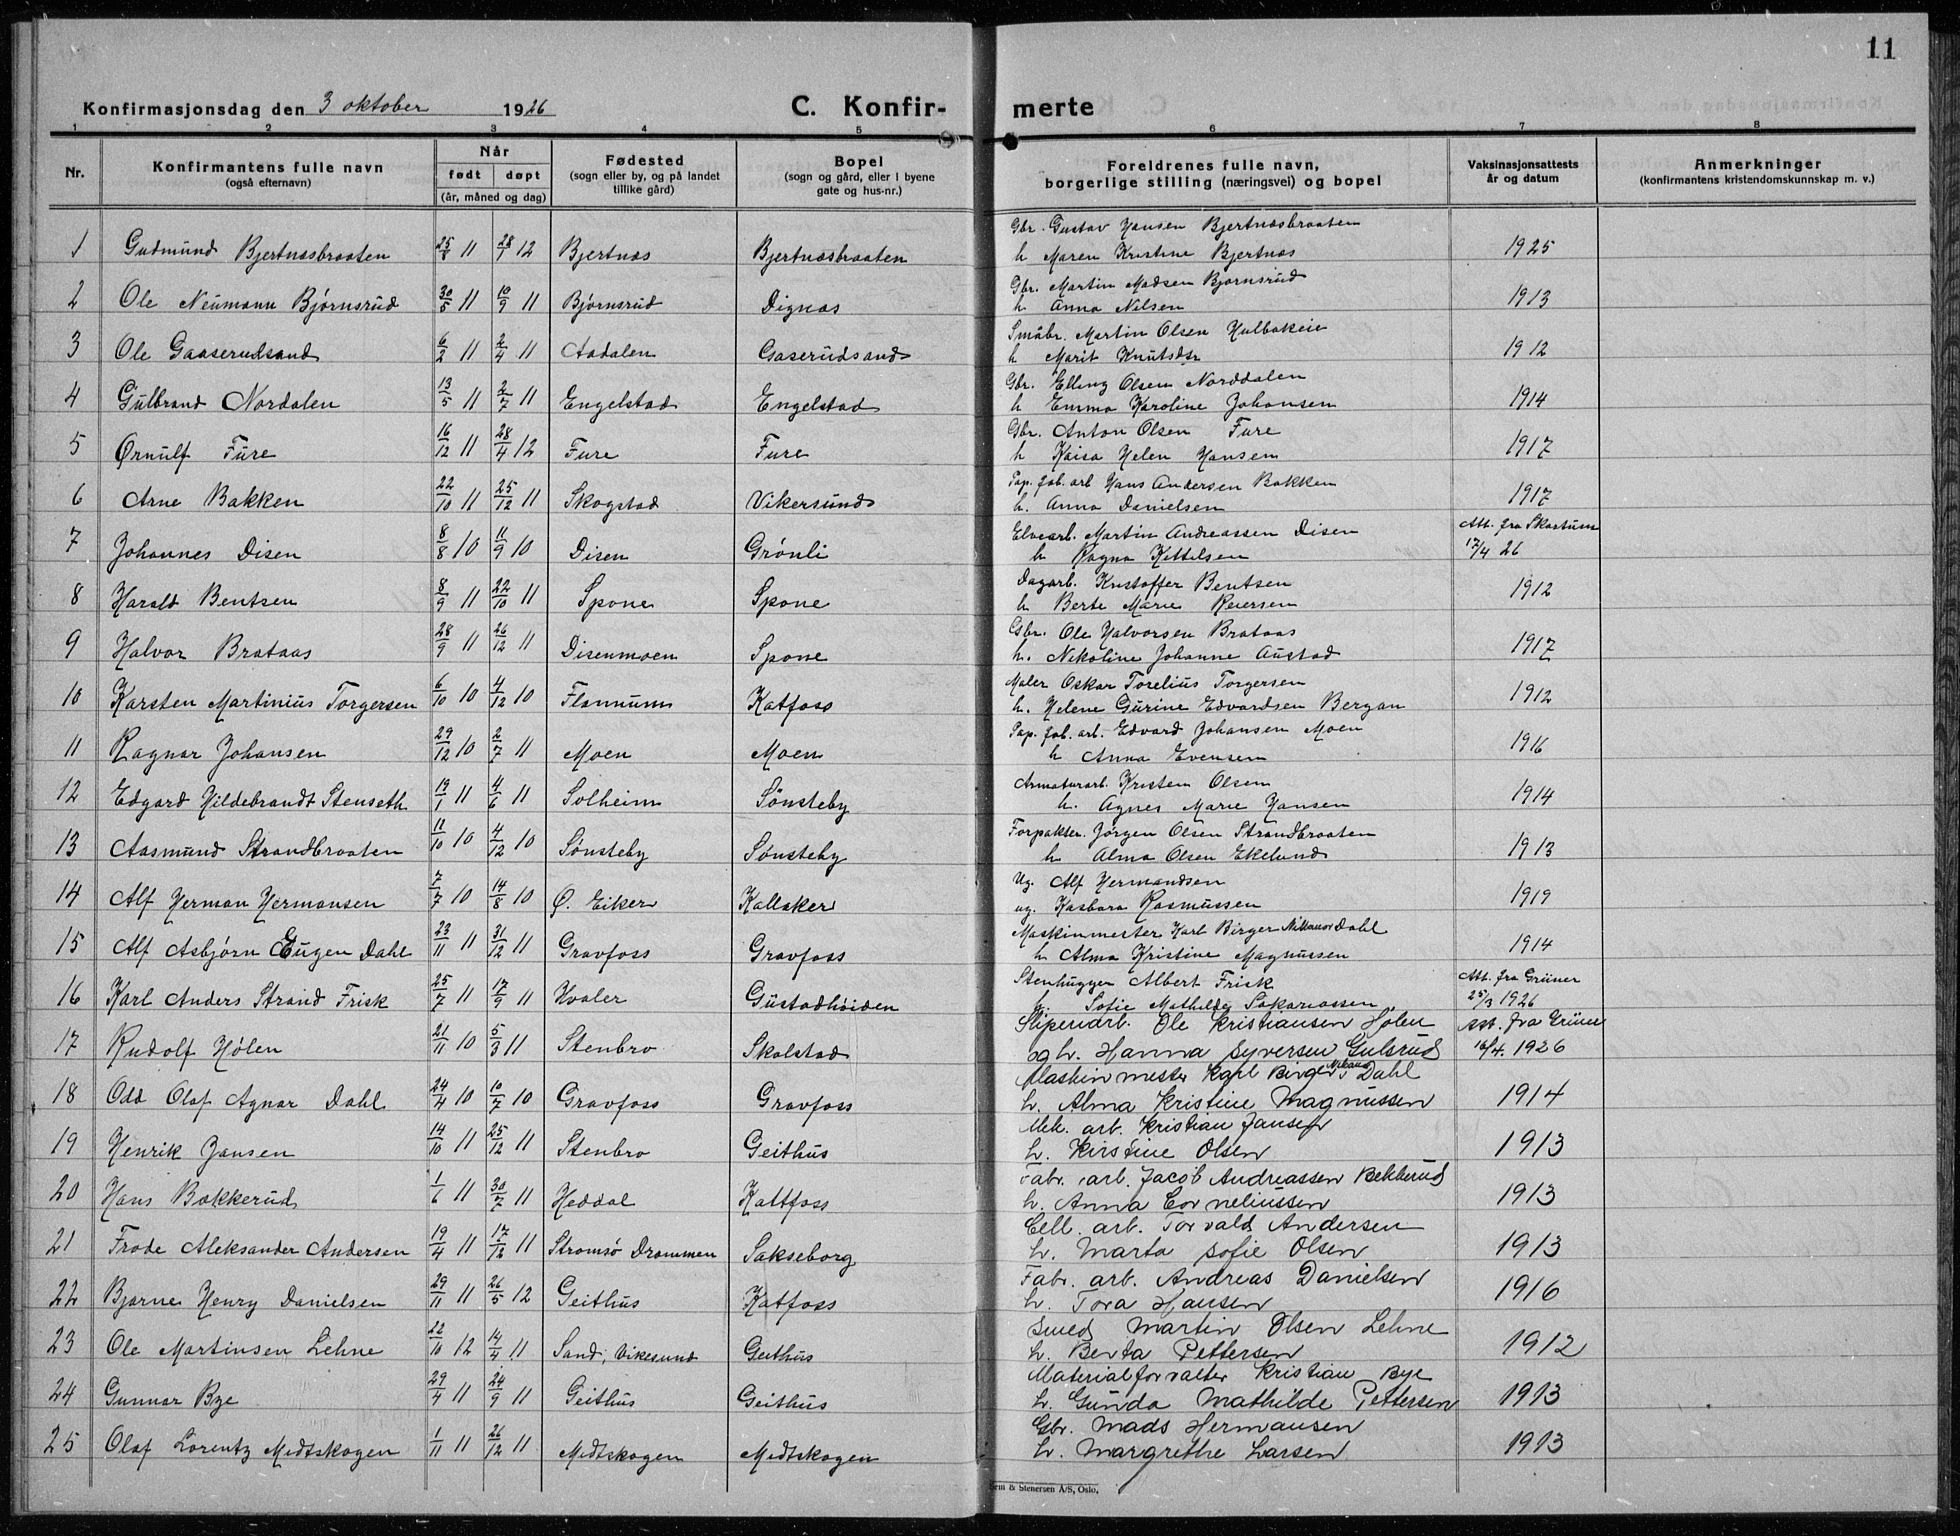 11
Konfirmasjonsdag den 3 oktober 1926 C. Konfirmerte
1 2 3 4 5 6 7 8
Nr. Konfirmantens fulle navn (også efternavn) Når født døpt (år, måned og dag) Fødested (sogn eller by, og på landet tillike gård) Bopel (sogn og gård, eller i byene gate og hus-nr.) Foreldrenes fulle navn, borgerlige stilling (næringsvei) og bopel Vaksinasjonsattests år og datum Anmerkninger (konfirmantens kristendomskunnskap m. v.)
1 Gudmund Bjertnæsbraaten 25/8 11 28/7 12 Bjertnæs Bjertnæsbraaten Gbr. Gustav Hansen Bjertnæsbraaten
h Maren Kristine Bjertnæs 1925
2 Ole Neumann Bjørnsrud 30/5 11 10/9 11 Bjørnsrud Dignæs Gbr. Martin Madsen Bjørnsrud
h Anna Nilsen 1913
3 Ole Gaaserudsand 6/2 11 2/4 11 Aadalen Gaserudsand Småbr. Martin Olsen Hulbakeie
h Marit Knutsdtr 1912
4 Gulbrand Nordalen 13/5 11 2/7 11 Engelstad Engelstad Gbr. Elling Olsen Norddalen
h Emma Karoline Johansen 1914
5 Ørnulf Fure 16/12 11 28/4 12 Fure Fure Gbr. Anton Olsen Fure
h Kaisa Helen Hansen 1917
6 Arne Bakken 22/10 11 25/12 11 Skogstad Vikersund Pap. fab. arb Hans Andersen Bakken
h. Anna Danielsen 1917
7 Johannes Disen 8/8 10 11/9 10 Disen Grønli Elvearb. Martin Andreassen Disen Att. fra Skartum
h Ragna Kittelsen 17/4 26
8 Harald Bentsen 8/9 11 22/10 11 Spone Spone Dagarb. Kristoffer Bentsen
h Berte Marie Reiersen 1912
9 Halvor Brataas 28/9 11 26/12 11 Disenmoen Spone Gbr. Ole Halvorsen Brataas
h. Nikoline Johanne Austad 1917
10 Karsten Martinius Torgersen 6/10 10 4/12 10 Flannum Katfoss Maler Oskar Torelius Torgersen
h. Helene Gurine Edvardsen Bergan 1912
11 Ragnar Johansen 29/12 10 2/7 11 Moen Moen Pap. fab. arb. Edvard Johansen Moen
h Anna Evensen 1916
12 Edgard Hildebrandt Stenseth 19/1 11 4/6 11 Solheim Sønsteby Armaturarb. Kristen Olsen
h. Agnes Marie Hansen 1914
13 Aasmund Strandbraaten 11/10 10 4/12 10 Sønsteby Sønsteby Forpakter. Jørgen Olsen Strandbraaten
h Alma Olsen Ekelund 1913
14 Alf Herman Hermansen 7/7 10 14/8 10 Ø. Eiker Kallaker Ug. Alf Hermandsen
ug. Kasbara Rasmussen 1919
15 Alf Asbjørn Eugen Dahl 23/11 11 31/12 11 Gravfoss Gravfoss Maskinmester Karl Birger Nikanor Dahl
h Alma Kristine Magnussen 1914
16 Karl Anders Strand Frisk 25/7 11 17/9 11 Hvaler Gustadhøiden Stenhugger Albert Frisk Att. fra Grüner
h. Sofie Mathilde Sakariassen 25/3 1926
17 Rudolf Hølen 21/11 10 5/3 11 Stenbro Skolstad Sliperiarb. Ole Kristiansen Hølen Att. fra Grüner
og h. Hanna Syversen Gulsrud 16/4. 1926
18 Odd Olaf Agnar Dahl 24/4 10 10/7 10 Gravfoss Gravfoss Maskinmester Karl Birger Dahl
h. Alma Kristine Magnussen 1914
19 Henrik Jansen 14/10 11 25/12 11 Stenbro Geithus Mek. arb. Kristian Jansen
h. Kirstine Olsen 1913
20 Hans Bækkerud 1/6 11 30/7 11 Heddal Kattfoss Fabr. arb. Jacob Andreassen Bekkerud
h. Anna Corneliussen 1913
21 Frode Aleksander Andersen 19/4 11 17/12 11 Strømsø Drammen Sakseborg Cell. arb. Torvald Andersen
h. Marta Sofie Olsen 1913
22 Bjarne Henry Danielsen 29/11 11 26/5 12 Geithus Katfoss Fabr. arb. Andreas Danielsen
h. Tora Hansen 1916
23 Ole Martinsen Lehne 22/10 12 14/4 11 Sand, Vikesund Geithus Smed Martin Olsen Lehne
h. Berta Pettersen 1912
24 Gunnar Bye 29/4 11 24/9 11 Geithus Geithus Materialforvalter Kristian Bye
h. Gunda Mathilde Pettersen 1913
25 Olaf Lorentz Midtskogen 1/11 11 26/12 11 Midtskogen Midtskogen Gbr. Mads Hermansen
h. Margrethe Larsen 1913
Sem & Stenersen A/S, Oslo.